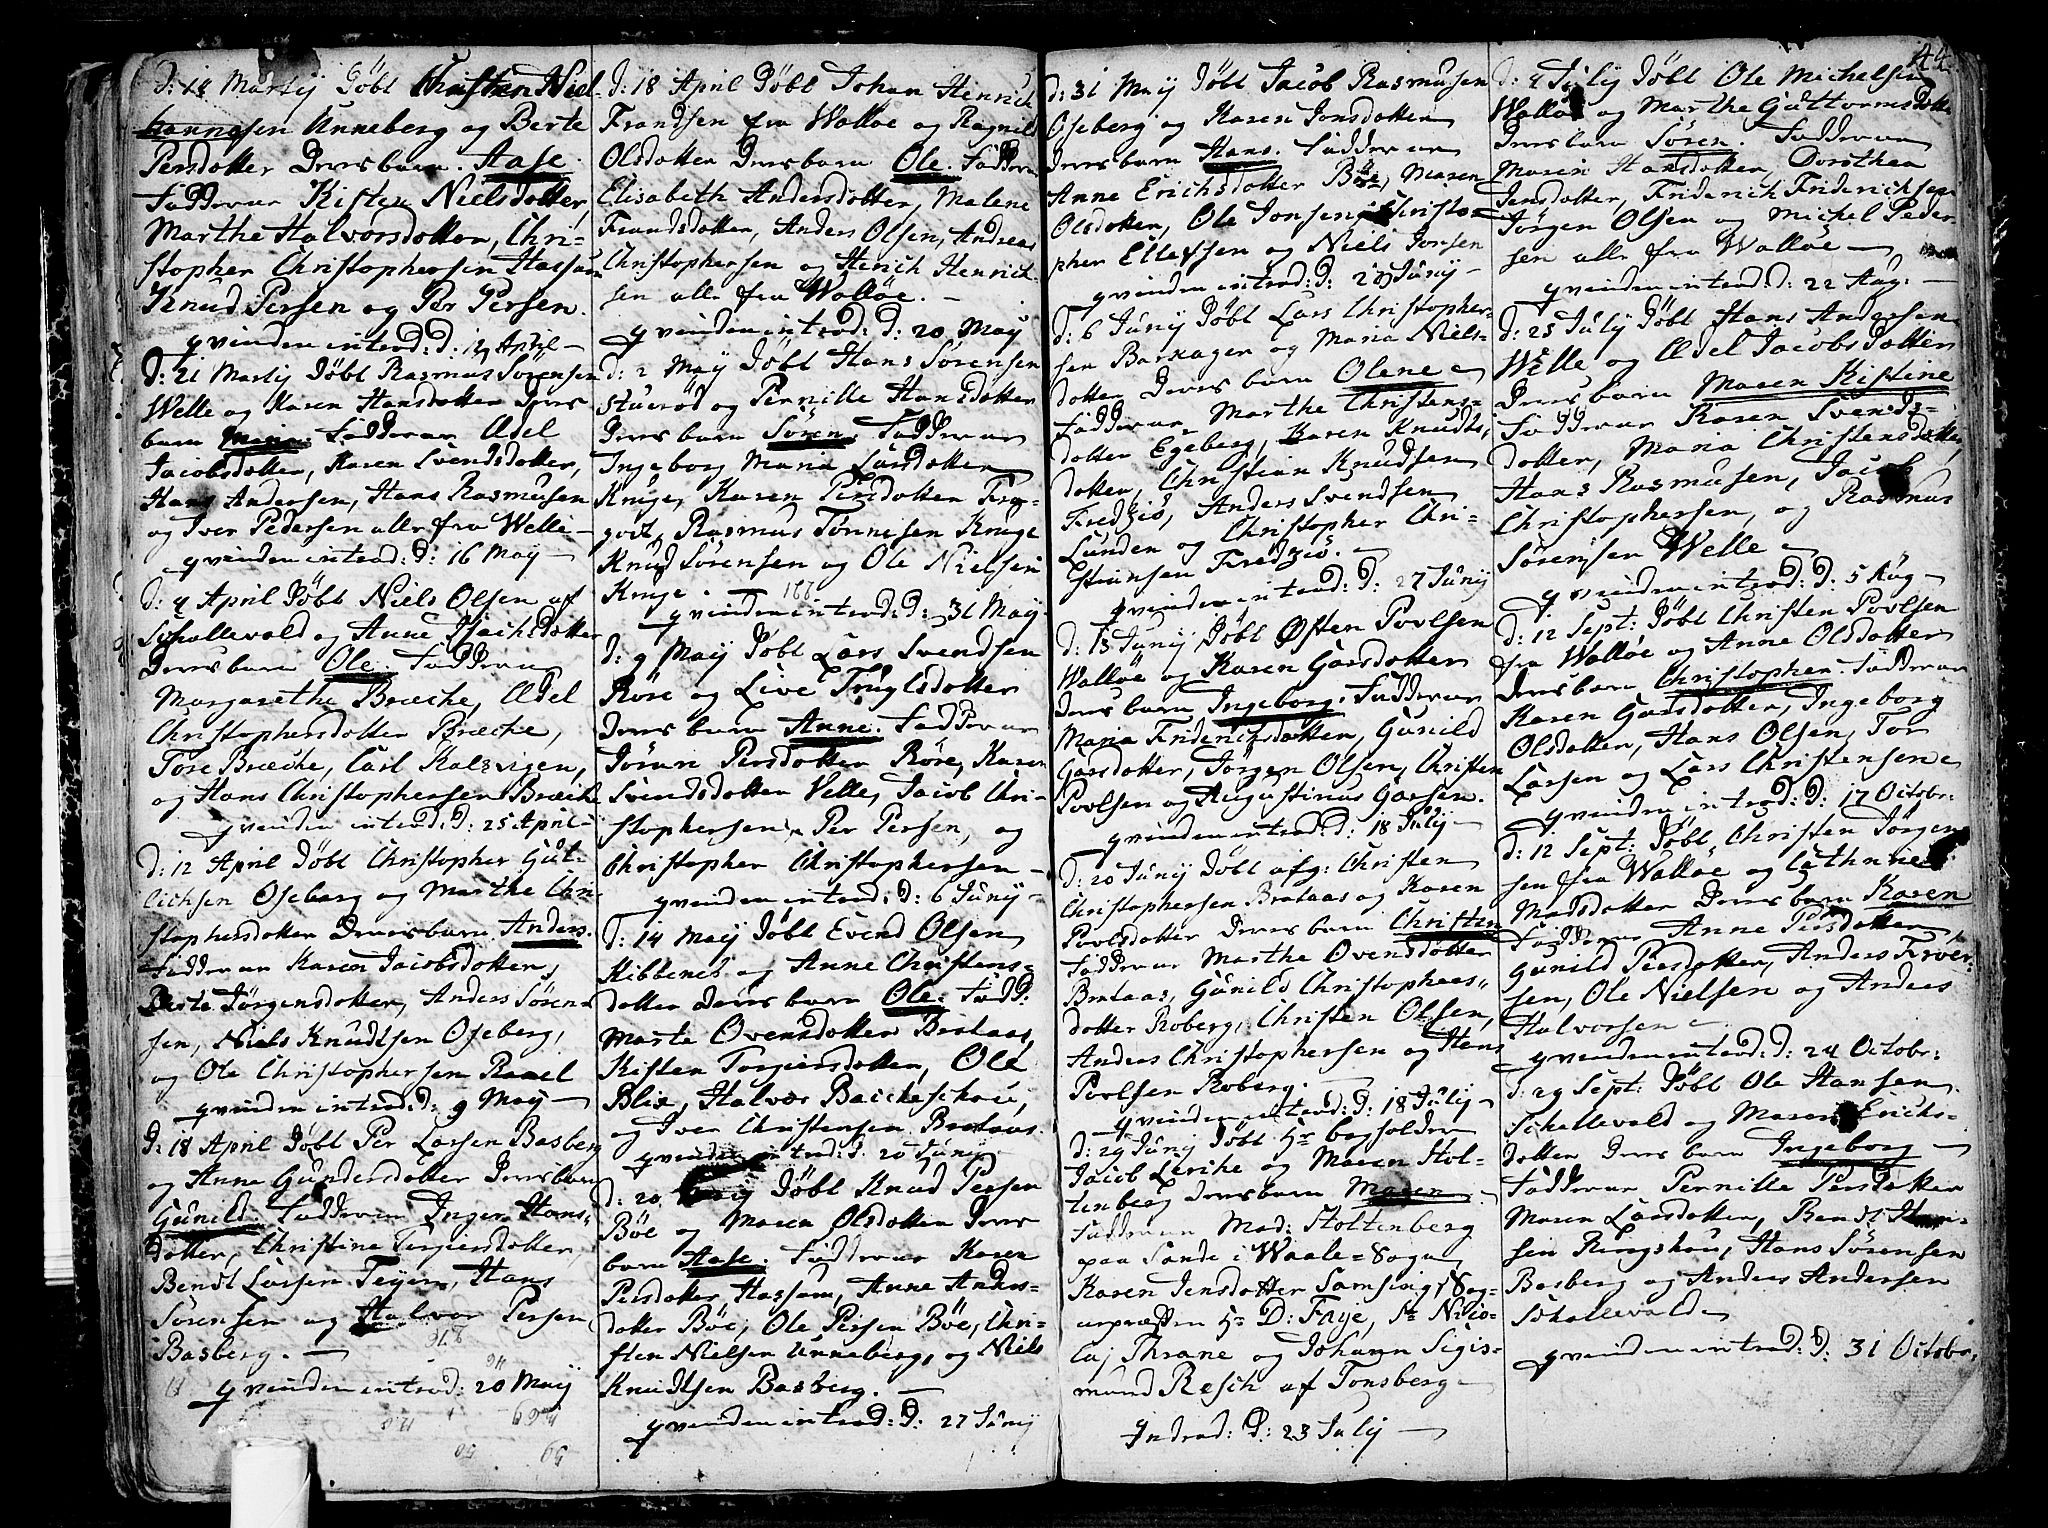 44.
D: 14 Martij Døbt Christen Niel-
hannasen Unneberg og Berte
Persdotter Deres barn. Aase.
Fadderne Kisten Nielsdotter,
Marthe Halvorsdotter, Chri-
stopher Christophersen Hassum
Knud Persen og Per Persen.
qvinden introd: D: 14 April
D: 21 Martij Døbt Rasmus Sørensen
Welle og Karen Hansdotter deres
barn Maria. Fadderne Edel
Jacobsdotter, Karen Svendsdotter,
Hans Andersen, Hans Rasmusen
og Iver Pedersen alle fra Welle
qvinden introd: D: 16 May
D: 4 April Døbt Niels Olsen af
Schallevold og Anne Isachsdotter
Deres barn Ole. Fadderne
Margarethe Bræche, Edel
Christophersdotter Bræche,
Tore Bræche, Carl Kalsvigen,
og Hans Christophersen Bræche
qvinden introd: D: 25 April
D: 12 April Døbt Christopher Gut-
lichsen Oseberg og Marthe Chri-
stophersdotter Deres barn Anders.
Fadderne Karen Jacobsdotter,
Berte Jørgensdotter, Anders Søren-
sen, Niels Knudtsen Oseberg,
og Ole Christophersen Ramel
qvinden introd: D: 9 May
D: 18 April Døbt Per Larsen Basberg
og Anne Gundersdotter Deres barn
Gunild. Fadderne Inger Hans-
dotter, Christine Torgiersdotter,
Bendt Larsen Teyen, Hans
Sørensen og Halvor Persen,
Basberg.
qvinden introd: 20 Maij
D: 18 April Døbt Johan Henrich
Frandsen fra Walløe og Ragnild
Olsdotter Deres barn Ole. Fadderne
Elisabeth Andersdotter, Malene
Frandsdotter, Anders Olsen, Andreas
Christophersen og Henrich Henrich-
sen alle fra Walløe.
qvinden introd: D: 20 May
D: 2 Maij Døbt Hans Sørensen
Stuerød og Pernille Hansdotter
Deres barn Søren. Fadderne
Ingeborg Maria Larsdotter
Kruge, Karen Persdotter Fra-
godt, Rasmus Tønnesen Kruge
Knud Sørensen og Ole Nielsen
Kruge.
qvinden introd: D: 31 May
D: 9 Maij Døbt Lars Svendsen
Røre og Live Trugelsdotter
Deres barn Anne. Fadderne
Jøran Persdotter Røre, Karen
Svendsdotter Velle, Jacob Chri-
stophersen, Per Persen, og
Christopher Christophersen
qvinden introd: D: 6 Junij
D: 14 Maij Døbt Evend Olsen
Kibbenes og Anne Christens-
dotter deres barn Ole. Fadd:
Marte Ovensdotter Brataas,
Kisten Torgiersdotter, Ole
Blix, Halvor Backeschou,
og Iver Christensen Brataas.
qvinden introd: D. 20 Junij
D: 20 Maij Døbt Knud Persen
Bøe og Maren Olsdotter Deres
barn Aase. Fadderne Karen
Persdotter Hassum, Anne Anders-
dotter Bøe, Ole Persen Bøe, Chri-
sten Nielsen Unneberg, og Niels
Knudtsen Basberg.
qvinden introd: D: 27 Junij
D: 31 Maij Døbt Jacob Rasmusen
Oseberg og Karen Jonsdotter
deres barn Hans. Fadderne
Anne Erichsdotter Bøe, Maren
Olsdotter, Ole Jonsen, Christo-
pher Ellefsen og Niels Jonsen
qvinden introd: D: 20 Junij
D: 6 Junij Døbt Lars Christopher-
sen Barkager og Maria Niels-
dotter Deres barn Olene
Fadderne Marthe Christens-
dotter Egeberg, Karen Knudts-
dotter, Christian Knudsen
Fredziø, Anders Svendsen
Lunden og Christopher Chri-
stiansen Fredziø.
qvinden introd: D: 27 Junij
D: 13 Junij Døbt Østen Povlsen
Walløe og Karen Garsdotter
deres barn Ingeborg. Fadderne
Maria Friderichsdotter, Gunild
Garsdotter, Jørgen Olsen, Christen
Povlsen og Augustinus Garsen.
qvinden introd: D: 18 Julij
D: 20 Junij Døbt afg: Christen
Christophersen Brataas og Karen
Povlsdotter Deres barn Christen
Fadderne Marthe Ovensdotter
Brataas, Gunild Christophers-
dotter Roberg, Christen Olsen,
Anders Christophersen og Hans
Povlsen Roberg.
qvinden introd: D: 18 Julij
D: 29 Junij Døbt Hr bogholder
Jacob Lerche og Maren Stol-
tenberg deres barn Maren
Fadderne Mad: Stoltenberg
paa Sande i Waale=Sogn
Karen Jensdotter Samsing, Sog-
nepræsten Hr D: Faye, Sr Nico-
laj Thrane og Johann Sigis-
mund Resch af Tonsberg
Indrod: D: 23 Julij
D: 4 Julij Døbt Ole Michelsen
Walløe og Marthe Guttormsdotter
Deres barn Søren. Fadderne
Maren Hansdotter, Dorothea
Jensdotter, Friderich Friderichsen
Jørgen Olsen og Michel Peder-
sen alle fra Walløe
qvinden introd: D: 22 Aug:
D: 25 Julij Døbt Hans Andersen
Welle og Edel Jacobsdotter
Deres barn Maren Kistine
Fadderne Karen Svends-
dotter, Maria Christensdotter,
Hans Rasmusen, Jacob
Christophersen, og Rasmus
Sørensen Welle
qvinden introd: D: 5 Aug
D: 12 Sept: Døbt Christen Povlsen
fra Walløe og Anne Olsdotter
deres barn Christopher. Fadderne
Karen Garsdotter, Ingeborg
Olsdotter, Hans Olsen, Tor
Larsen og Lars Christensen
qvinden introd: D: 17 Octobr:
D: 12 Sept: Døbt Christen Jørgen-
sen fra Walløe og Cathrine
Madsdotter Deres barn Karen
Fadderne Anne Persdotter
Gunild Persdotter, Anders Fever-
sen, Ole Nielsen og Anders
Halvorsen
qvinden introd: D: 24 Octobr:
D: 29 Sept: Døbt Ole Hansen
Schallevold og Maren Erichs-
dotter Deres barn Ingeborg
Fadderne Pernille Persdotter
Maren Larsdotter, Bendt Han-
sen Ringshou, Hans Sørensen
Basberg og Anders Andersen
Schallevold
qvinden introd: D: 31 Octobr: